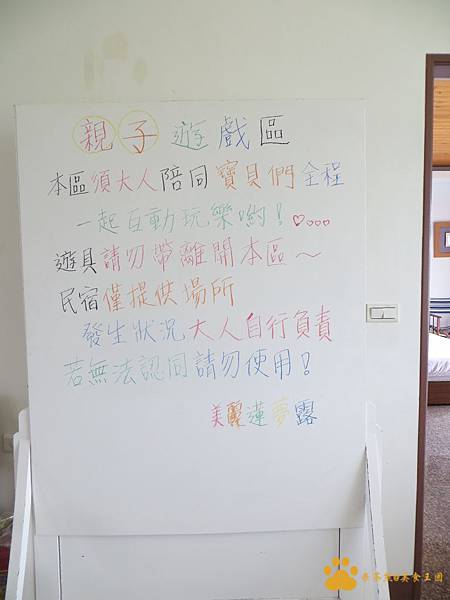 親子遊戲區
本區須大人陪同寶貝們全程
一起互動玩樂喲！♡...
遊具請勿帶離開本區～
民宿僅提供場所
發生狀況大人自行負責
若無法認同請勿使用！
美麗蓮夢露
美食王國